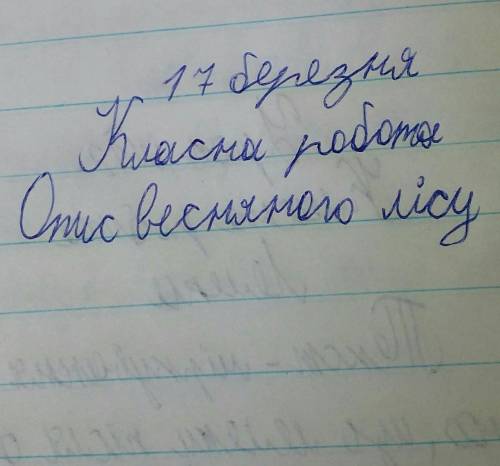 17 березня
Класна робота
Опис весняного лісу